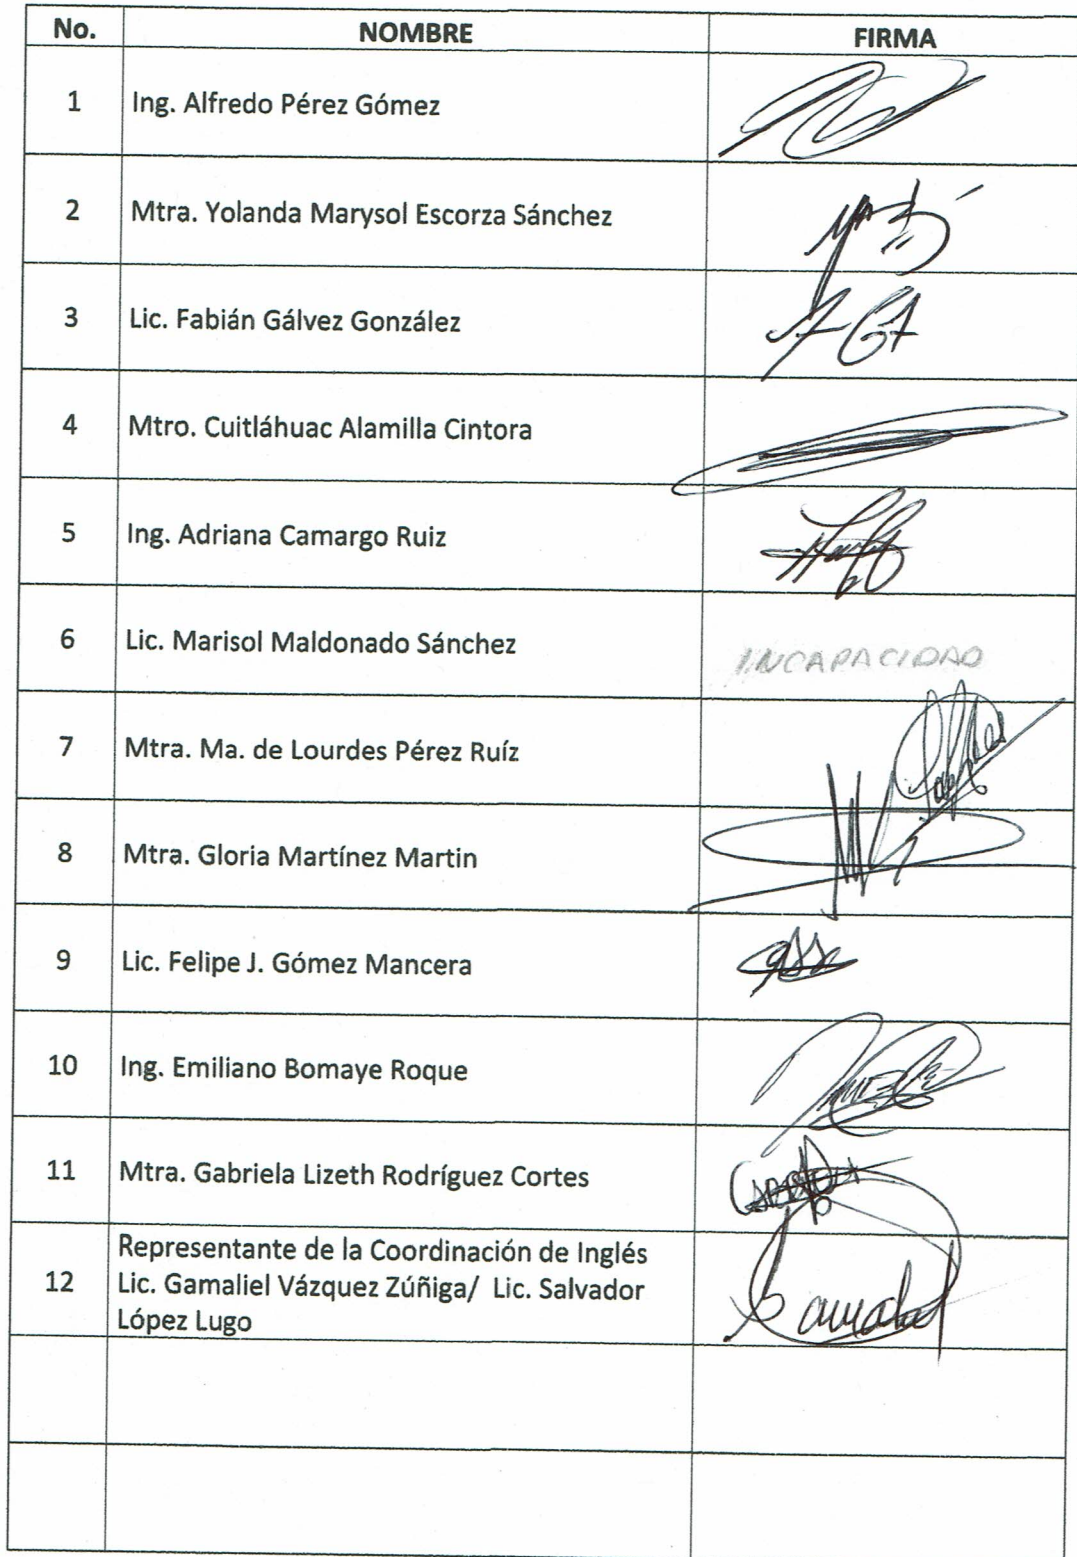 No. NOMBRE FIRMA
1 Ing. Alfredo Pérez Gómez
2 Mtra. Yolanda Marysol Escorza Sánchez
3 Lic. Fabián Gálvez González
4 Mtro. Cuitláhuac Alamilla Cintora
5 Ing. Adriana Camargo Ruiz
6 Lic. Marisol Maldonado Sánchez INCAPACIDAD
7 Mtra. Ma. de Lourdes Pérez Ruíz
8 Mtra. Gloria Martínez Martin
9 Lic. Felipe J. Gómez Mancera
10 Ing. Emiliano Bomaye Roque
11 Mtra. Gabriela Lizeth Rodríguez Cortes
Representante de la Coordinación de Inglés
12 Lic. Gamaliel Vázquez Zúñiga/ Lic. Salvador
López Lugo